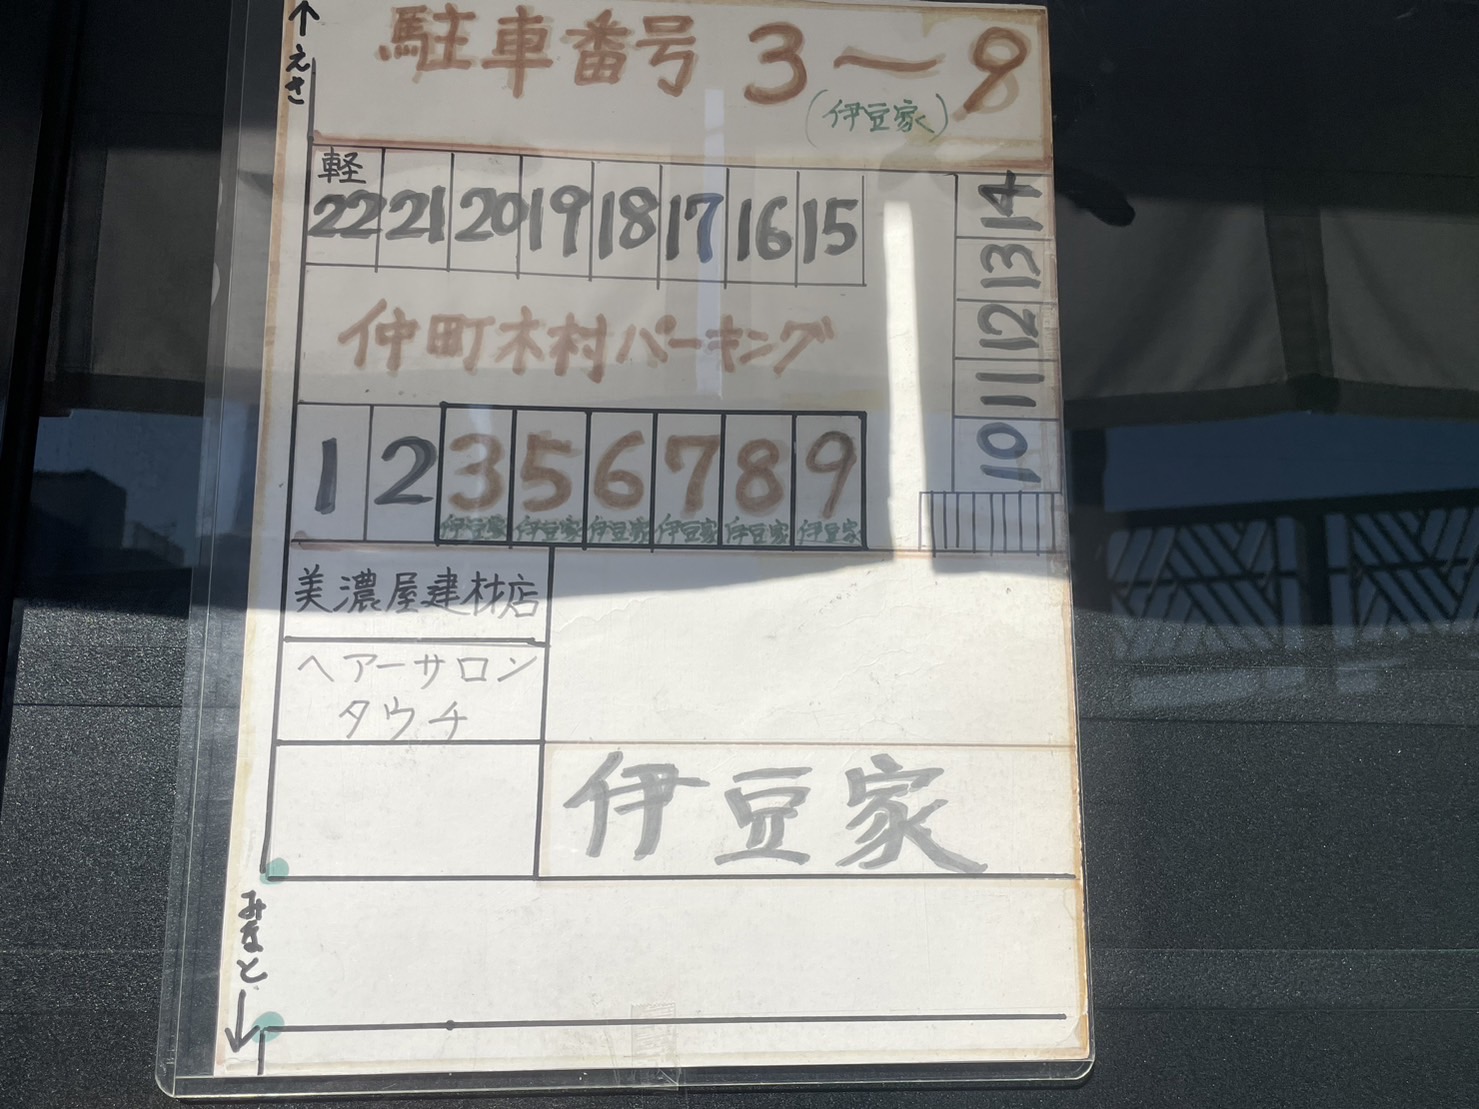 ↑えさ
駐車番号 3〜9
(伊豆家)
軽
22 21 20 19 18 17 16 15
14
13
12
11
10
仲町木村パーキング
1 2 3 5 6 7 8 9
伊豆家 伊豆家 伊豆家 伊豆家 伊豆家 伊豆家
美濃屋建材店
ヘアーサロン
タウチ
伊豆家
みなと↓